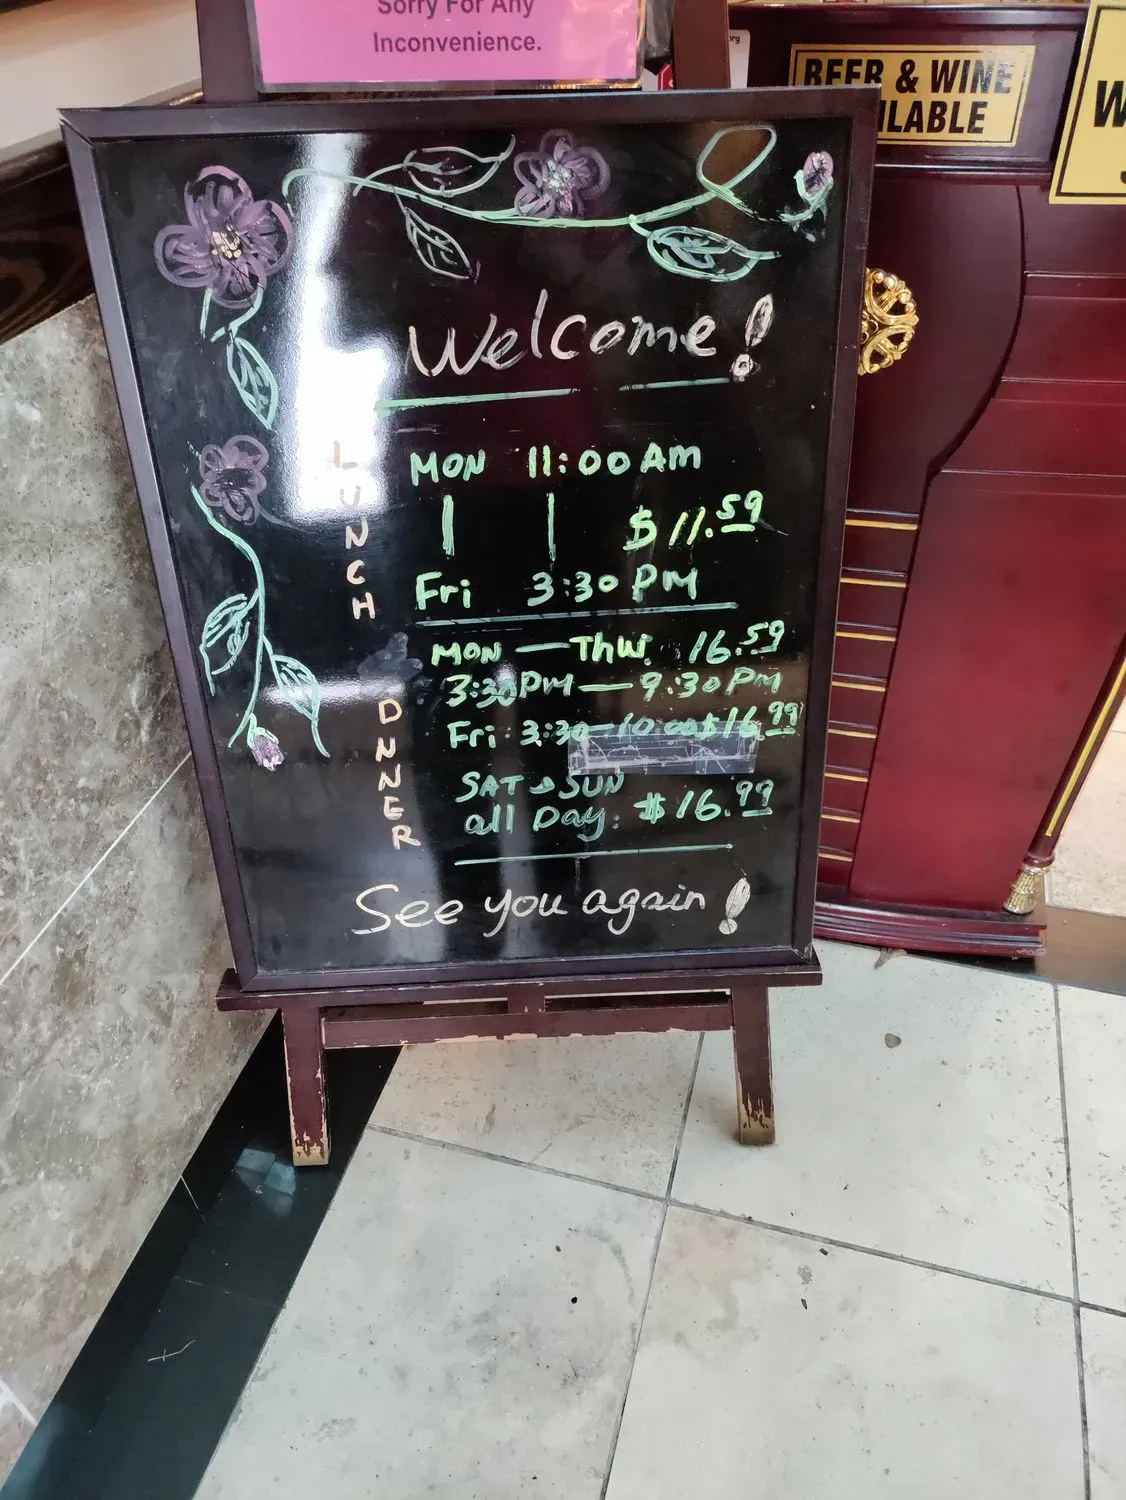 Sorry For Any
Inconvenience.
BEER & WINE
Welcome!
LUNCH
MON 11:00 Am
$11.59
Fri 3:30 PM
DINNER
MON — Thur. 16.59
3:30 PM — 9:30 PM
Fri: 3:30-10:00 $16.99
SAT & SUN
all Day: $16.99
See you again!